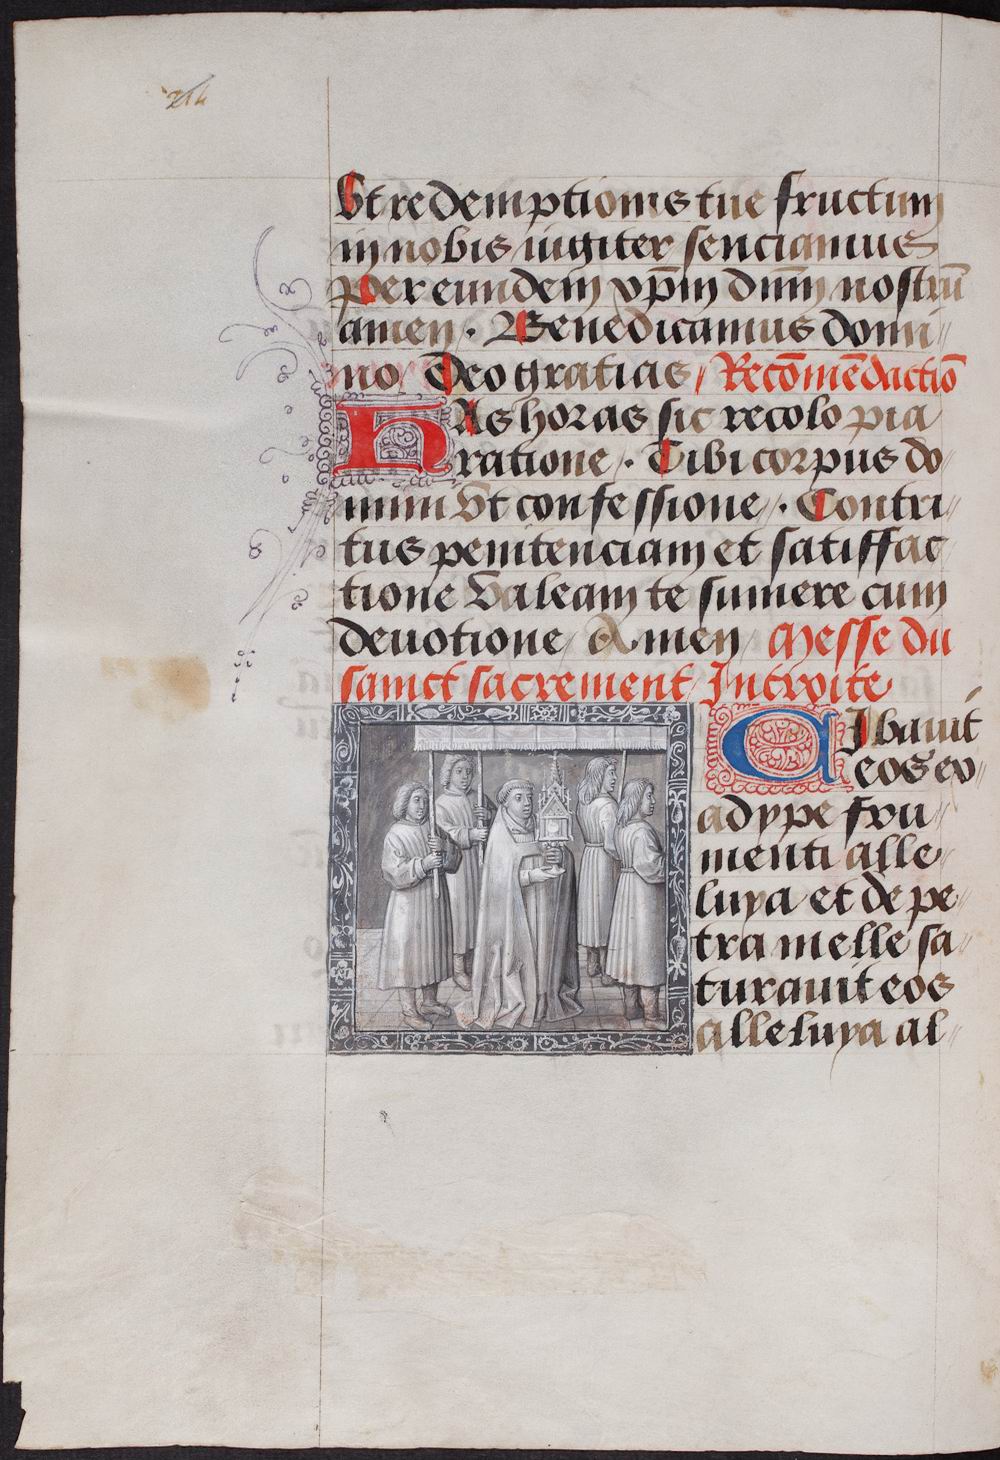 214
Vt redemptionis tue fructum
in nobis iugiter senciamus
Per eundem xp̄m dn̄m nostrū
amen. Benedicamus domi
no Deo gratias Recōmēdactiō
HAs horas sic recolo pia
ratione. Tibi corpus do
mini Vt confessione. Contri
tus penitenciam et satiffac
tione Valeam te sumere cum
deuotione Amen Messe du
sainct sacrement Introite
CIbauit
eos ex
adype fru
menti alle
luya et de pe
tra melle sa
turauit eos
alleluya al